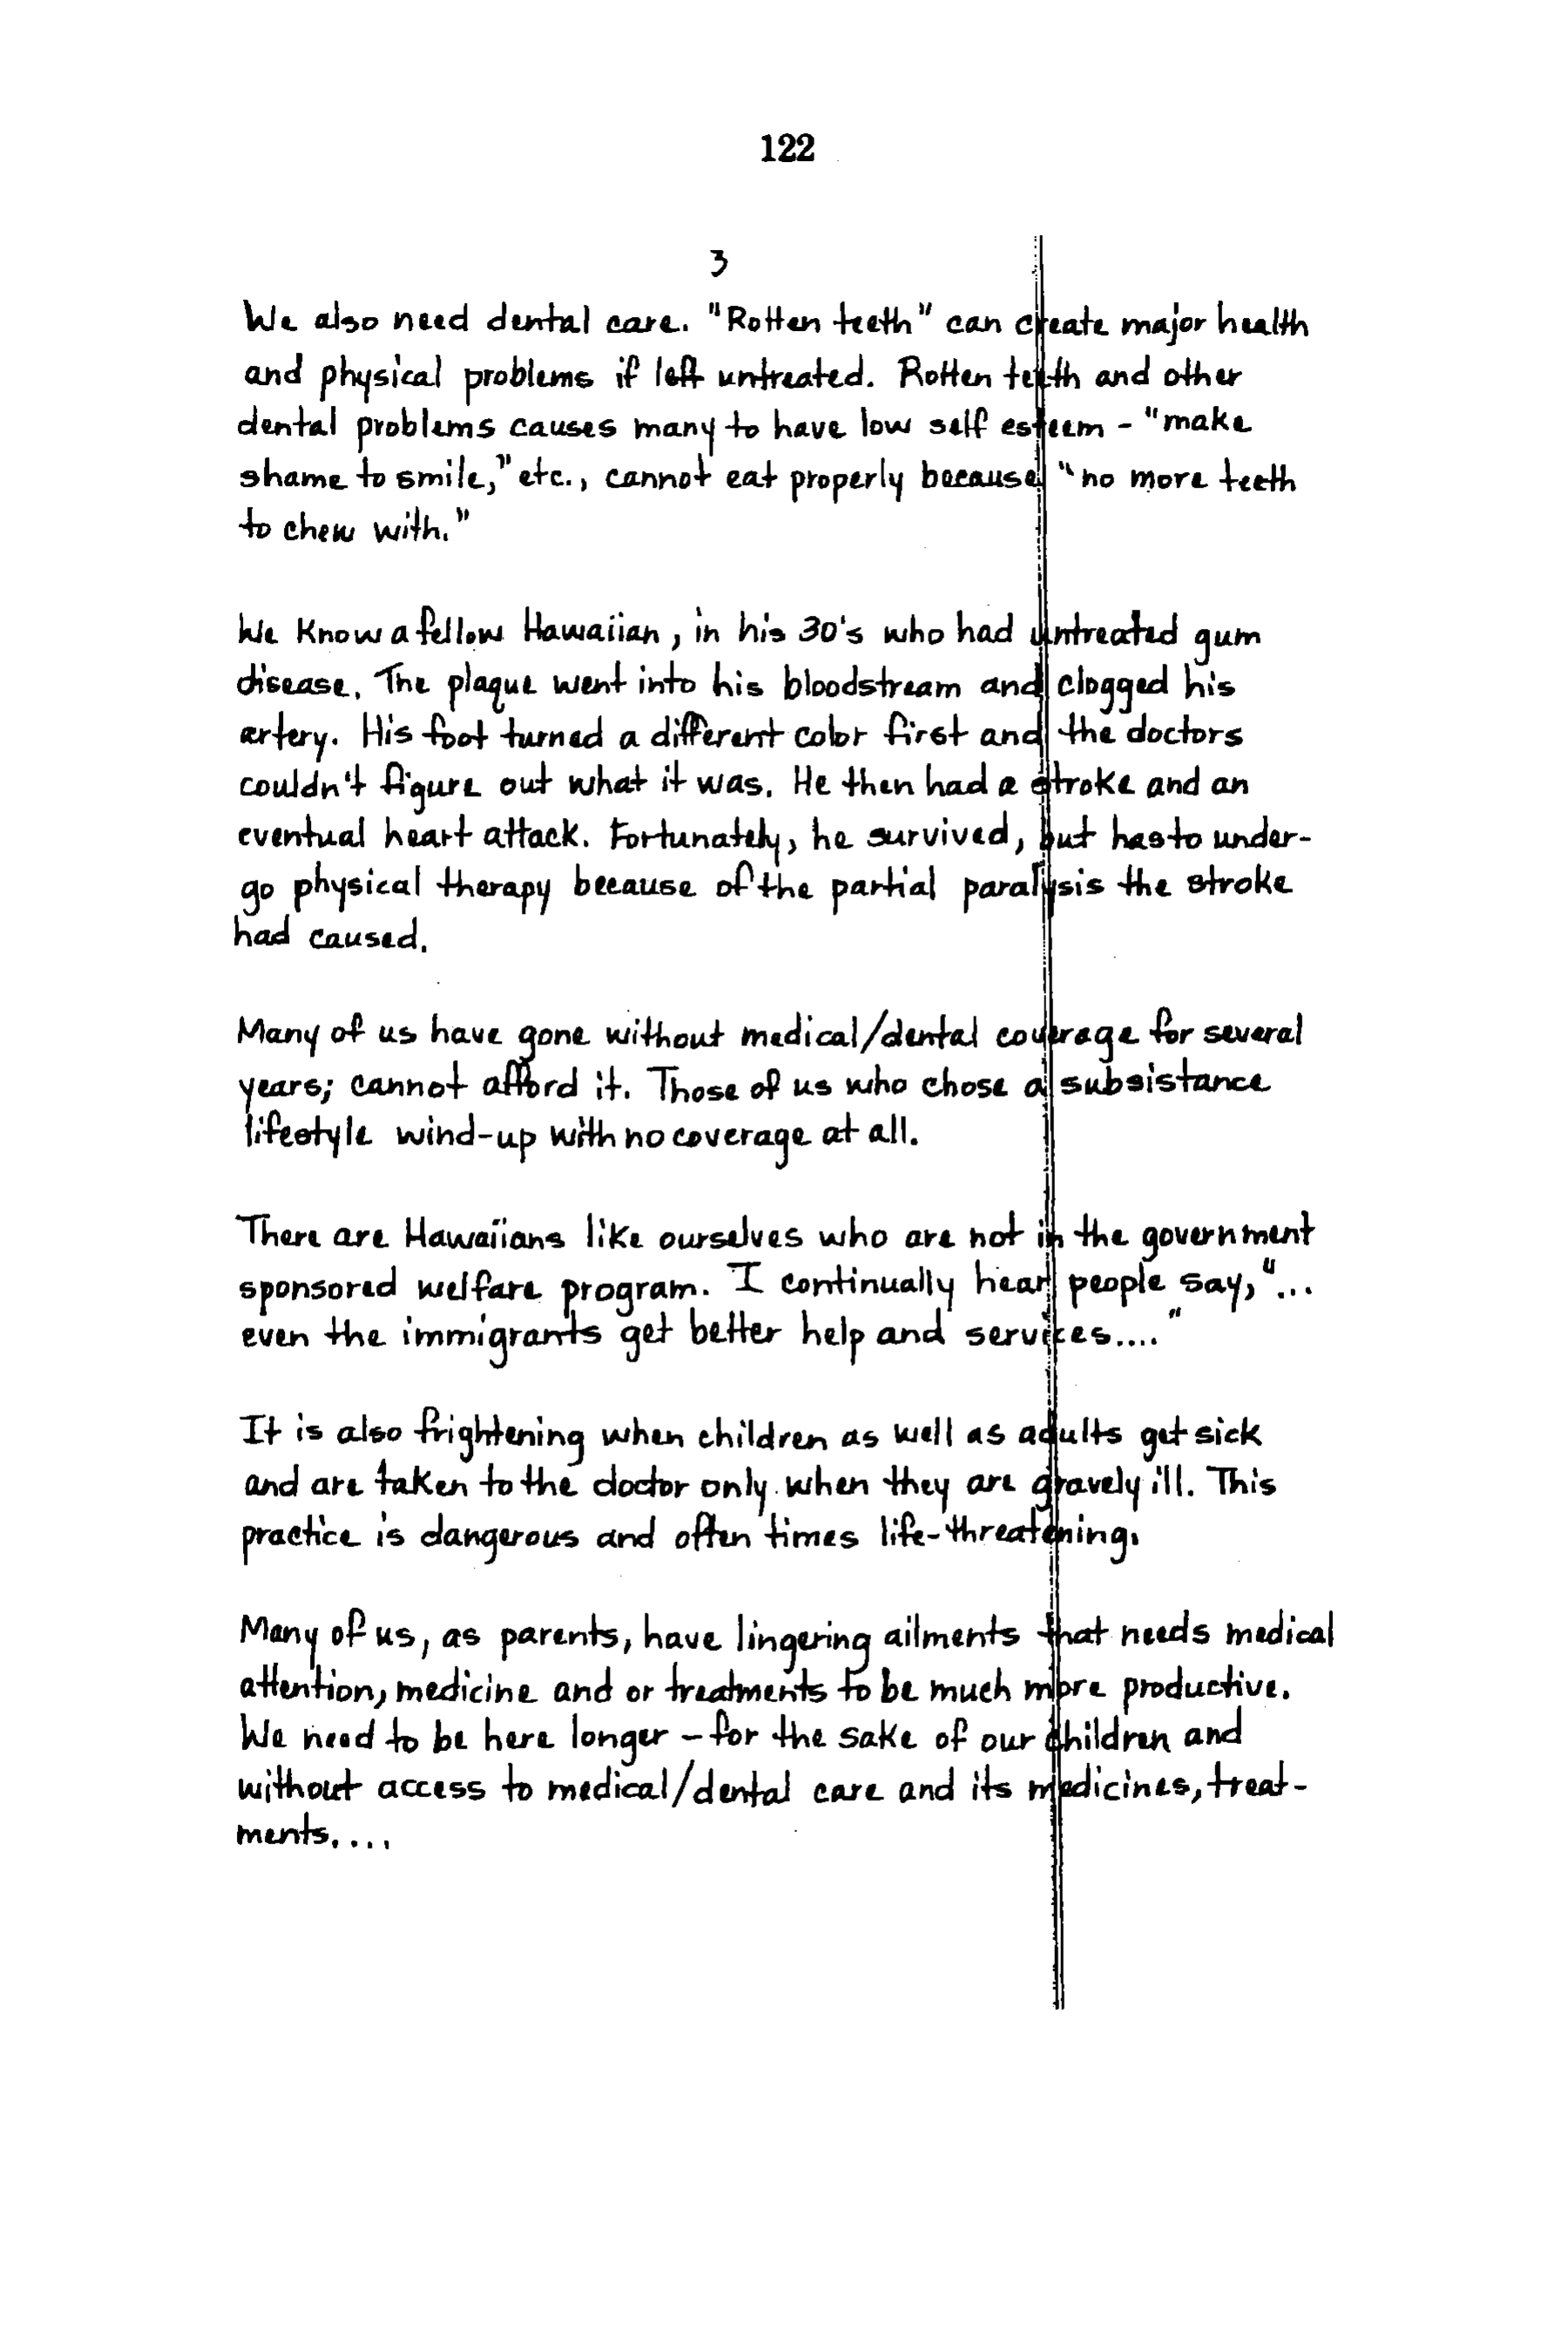 122
3
We also need dental care. "Rotten teeth" can create major health
and physical problems if left untreated. Rotten teeth and other
dental problems causes many to have low self esteem - "make
shame to smile," etc., cannot eat properly because "no more teeth
to chew with."
We know a fellow Hawaiian, in his 30's who had untreated gum
disease. The plaque went into his bloodstream and clogged his
artery. His foot turned a different color first and the doctors
couldn't figure out what it was. He then had a stroke and an
eventual heart attack. Fortunately, he survived, but has to under-
go physical therapy because of the partial paralysis the stroke
had caused.
Many of us have gone without medical/dental coverage for several
years; cannot afford it. Those of us who chose a subsistance
lifestyle wind-up with no coverage at all.
There are Hawaiians like ourselves who are not in the government
sponsored welfare program. I continually hear people say, "...
even the immigrants get better help and services...."
It is also frightening when children as well as adults get sick
and are taken to the doctor only when they are gravely ill. This
practice is dangerous and often times life-threatening.
Many of us, as parents, have lingering ailments that needs medical
attention, medicine and or treatments to be much more productive.
We need to be here longer - for the sake of our children and
without access to medical/dental care and its medicines, treat-
ments....